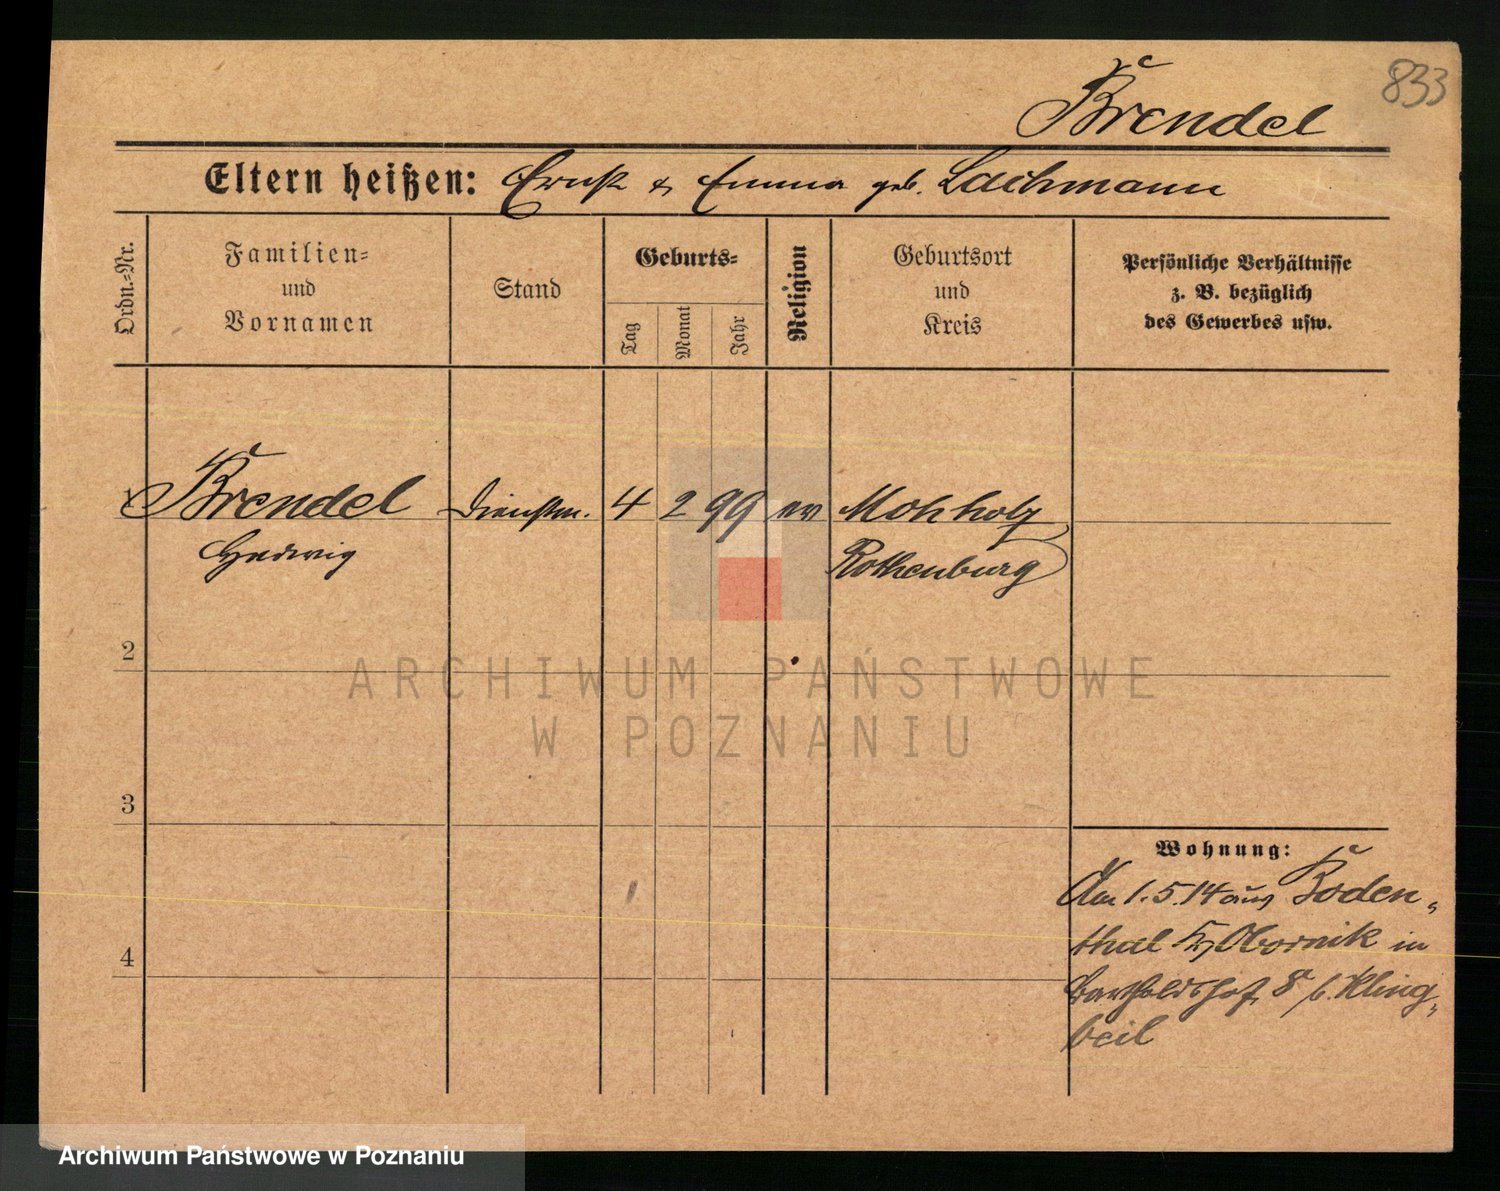 833
Brendel
Eltern heißen: Ernst & Emma geb. Lachmann
Ordn.-Nr.
Familien-
und
Vornamen
Stand
Geburts-
Tag
Monat
Jahr
Religion
Geburtsort
und
Kreis
Persönliche Verhältnisse
z. B. bezüglich
des Gewerbes usw.
1 Brendel Dienstm. 4 2 99 ev Mohholz
Hedwig Rothenburg
2
3
4
Wohnung:
Am 1.5.14 aus Boden-
thal Kr Obornik in
Bartholdshof 8 b. Kling-
beil
ARCHIWUM PAŃSTWOWE
W POZNANIU
Archiwum Państwowe w Poznaniu